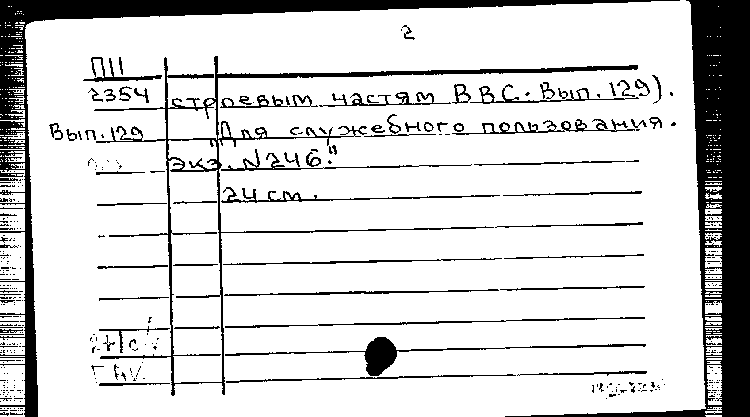 2
П11
2354 строевым частям ВВС. Вып. 129).
Вып. 129 "Для служебного пользования.
экз. N246."
24 см.